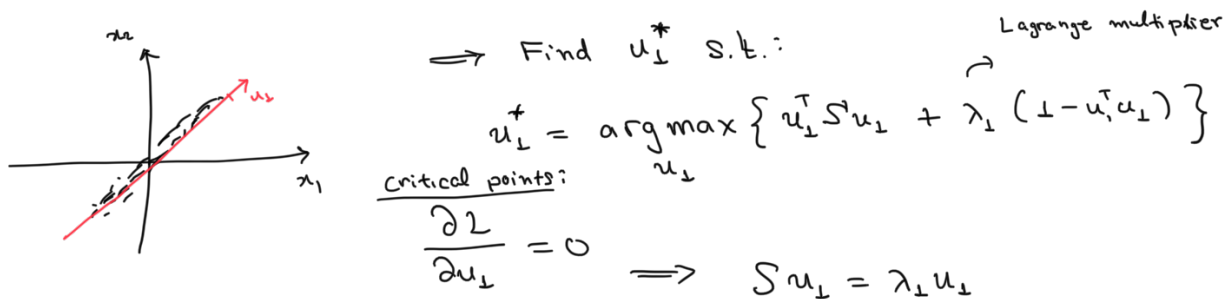 x₂
u₁
x₁
Lagrange multiplier
⟹ Find u₁* s.t.:
u₁* = argmax { u₁ᵀ S u₁ + λ₁ (1 - u₁ᵀ u₁) }
u₁
critical points:
∂L/∂u₁ = 0 ⟹ S u₁ = λ₁ u₁